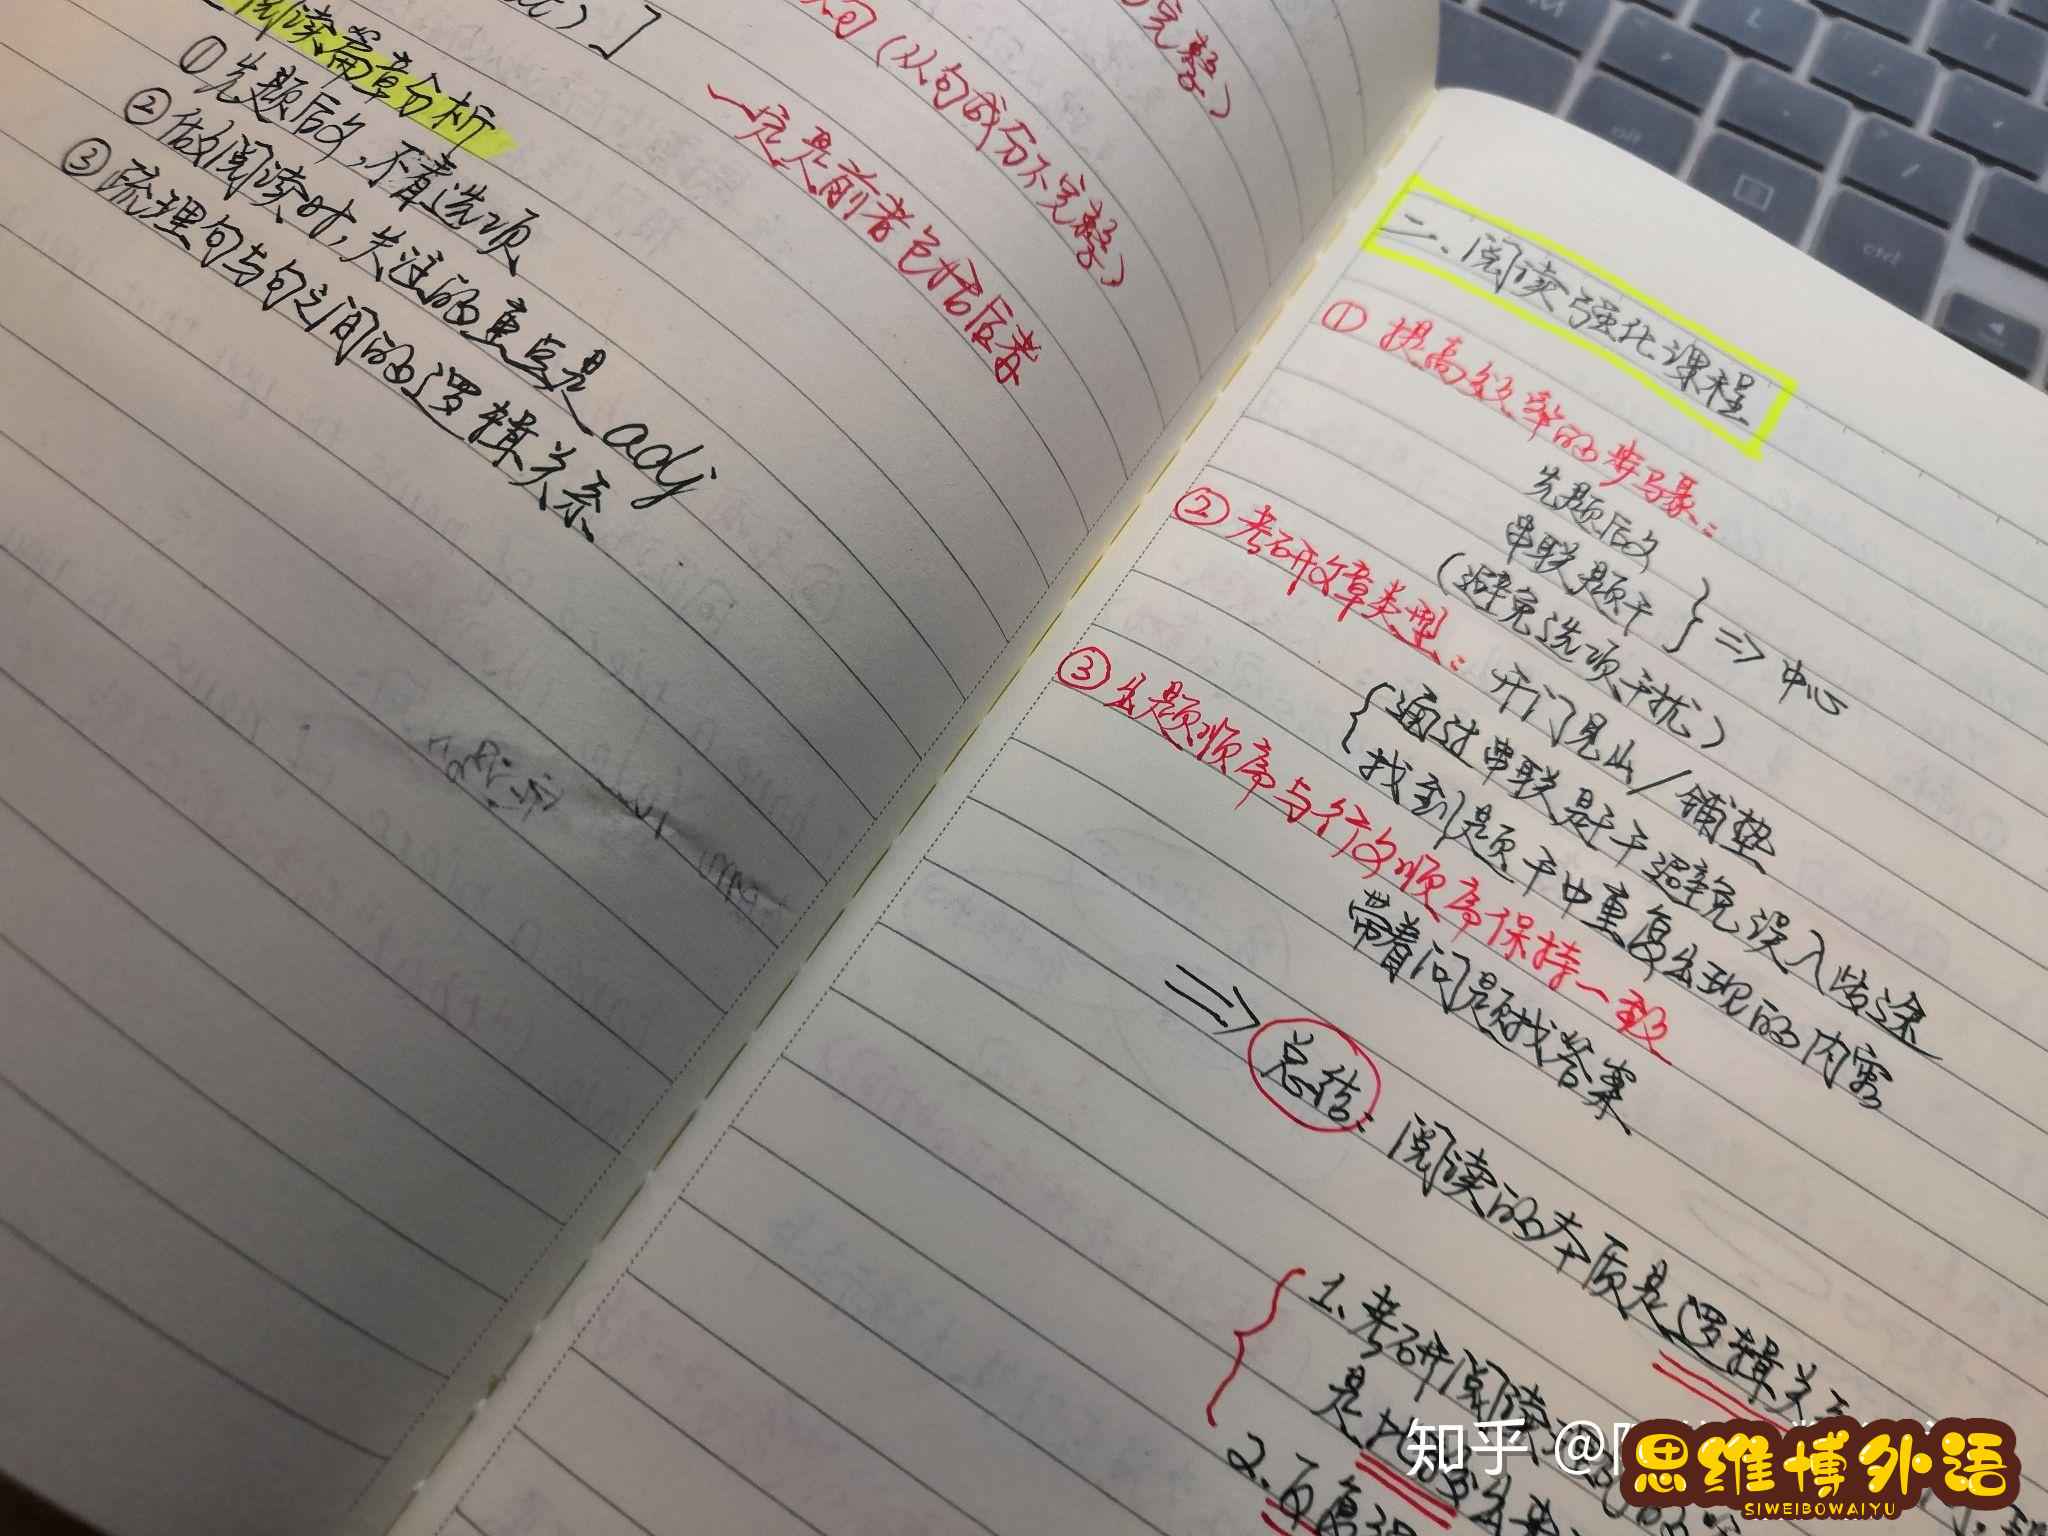 从句(从句成分不完整)
完整)
一定是前者包括后者
阅读篇章分析
①先题后文,不看选项
②做阅读时,关注的重点是adj
③疏理句与句之间的逻辑关系
二、阅读强化课程
①提高效率的步骤:
先题后文
串联题干
(避免选项干扰)
} => 中心
②考研文章类型:开门见山/铺垫
{通过串联题干避免误入歧途
找到题干中重复出现的内容
③出题顺序与行文顺序保持一致
带着问题找答案
=> 总结:阅读的本质是逻辑关
1.考研阅读
是
2.反复
知乎 @
思维博外语
SIWEIBOWAIYU